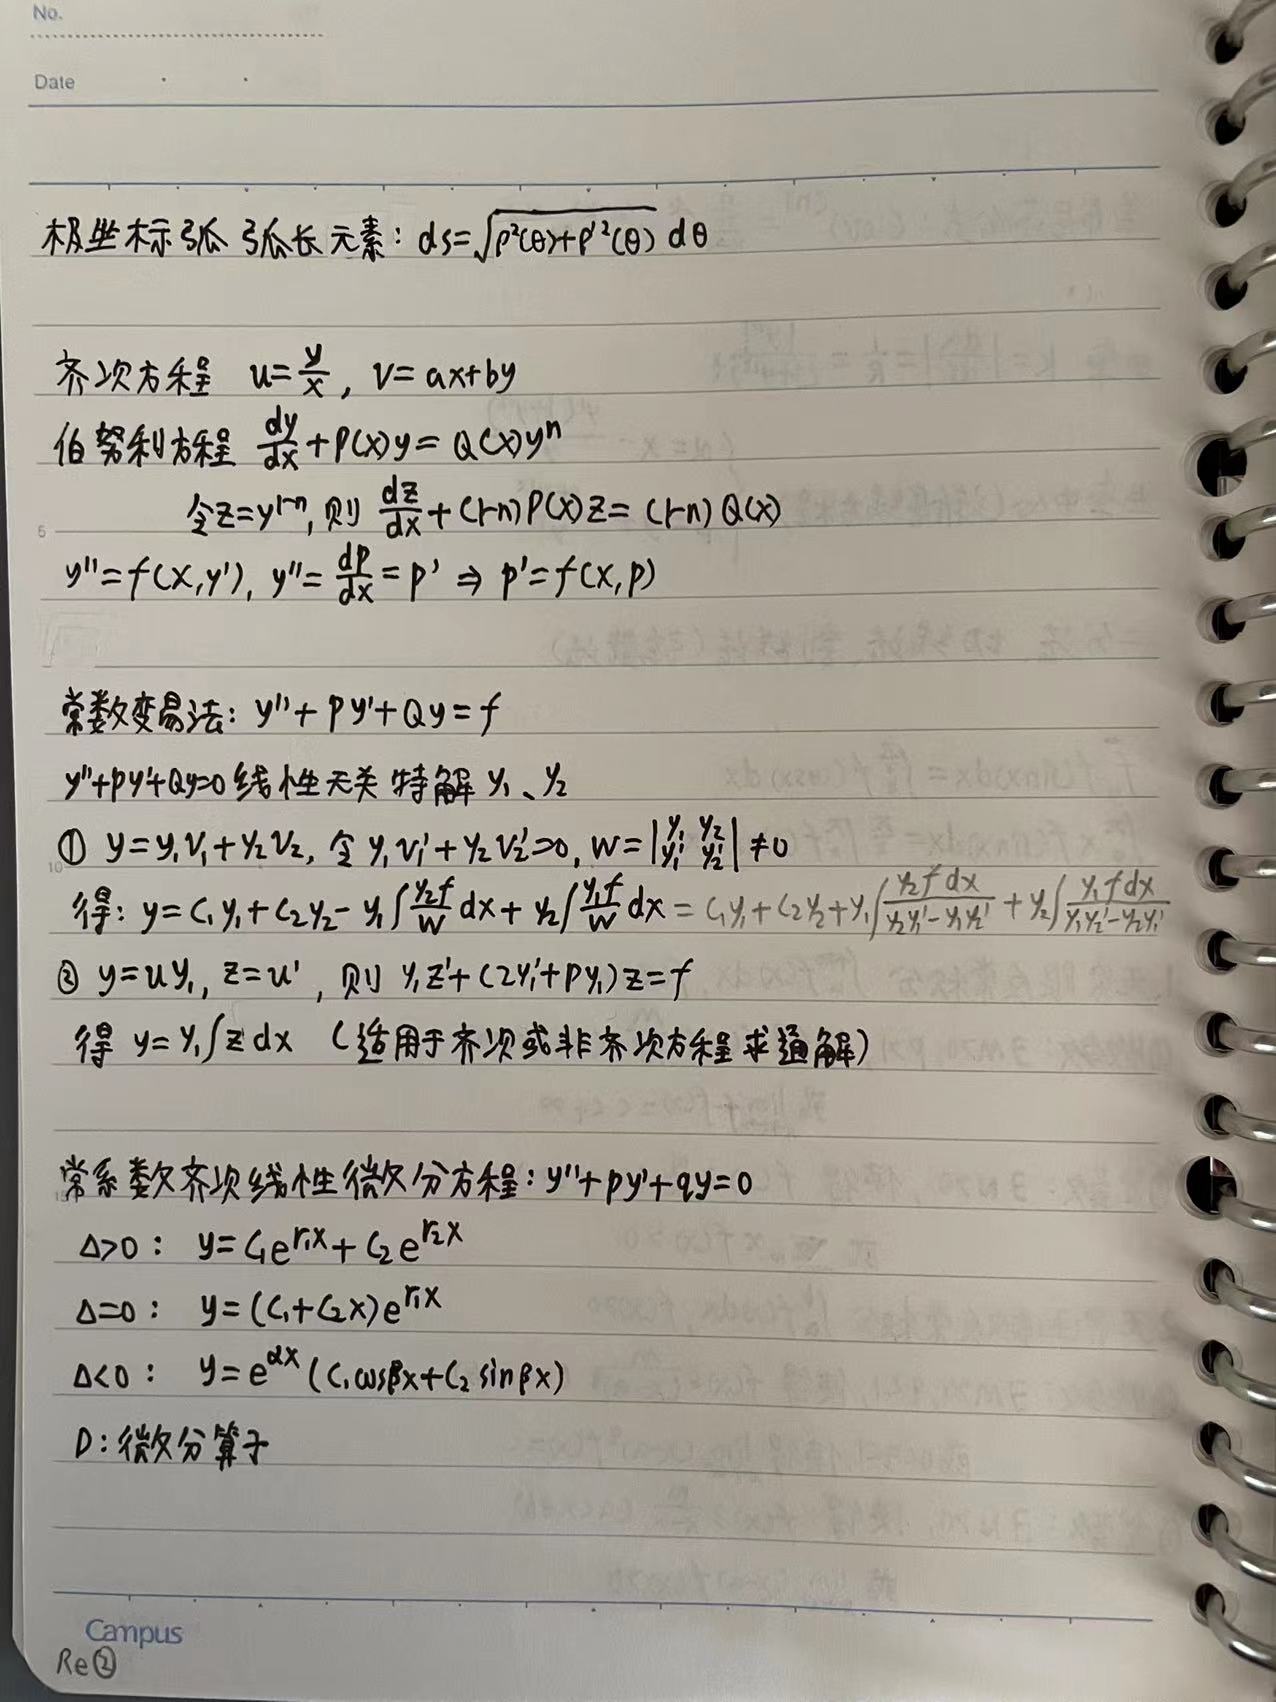 No.
Date
极坐标弧 弧长元素: ds=√(ρ²(θ)+ρ'²(θ)) dθ
齐次方程 u=y/x, v=ax+by
伯努利方程 dy/dx+P(x)y=Q(x)yⁿ
令z=y¹⁻ⁿ, 则 dz/dx+(1-n)P(x)z=(1-n)Q(x)
5
y''=f(x,y'), y''=dp/dx=p' ⇒ p'=f(x,p)
常数变易法: y''+Py'+Qy=f
y''+Py'+Qy=0 线性无关特解 y₁、y₂
① y=y₁v₁+y₂v₂, 令 y₁v₁'+y₂v₂'=0, W=|y₁ y₂; y₁' y₂'|≠0
10
得: y=C₁y₁+C₂y₂-y₁∫(y₂f/W)dx+y₂∫(y₁f/W)dx=C₁y₁+C₂y₂+y₁∫(y₂f dx)/(y₂y₁'-y₁y₂')+y₂∫(y₁f dx)/(y₁y₂'-y₂y₁')
② y=uy₁, z=u', 则 y₁z'+(2y₁'+Py₁)z=f
得 y=y₁∫z dx (适用于齐次或非齐次方程求通解)
常系数齐次线性微分方程: y''+py'+qy=0
Δ>0: y=C₁e^(r₁x)+C₂e^(r₂x)
Δ=0: y=(C₁+C₂x)e^(r₁x)
Δ<0: y=e^(αx)(C₁cosβx+C₂sinβx)
D:微分算子
Campus
Re②